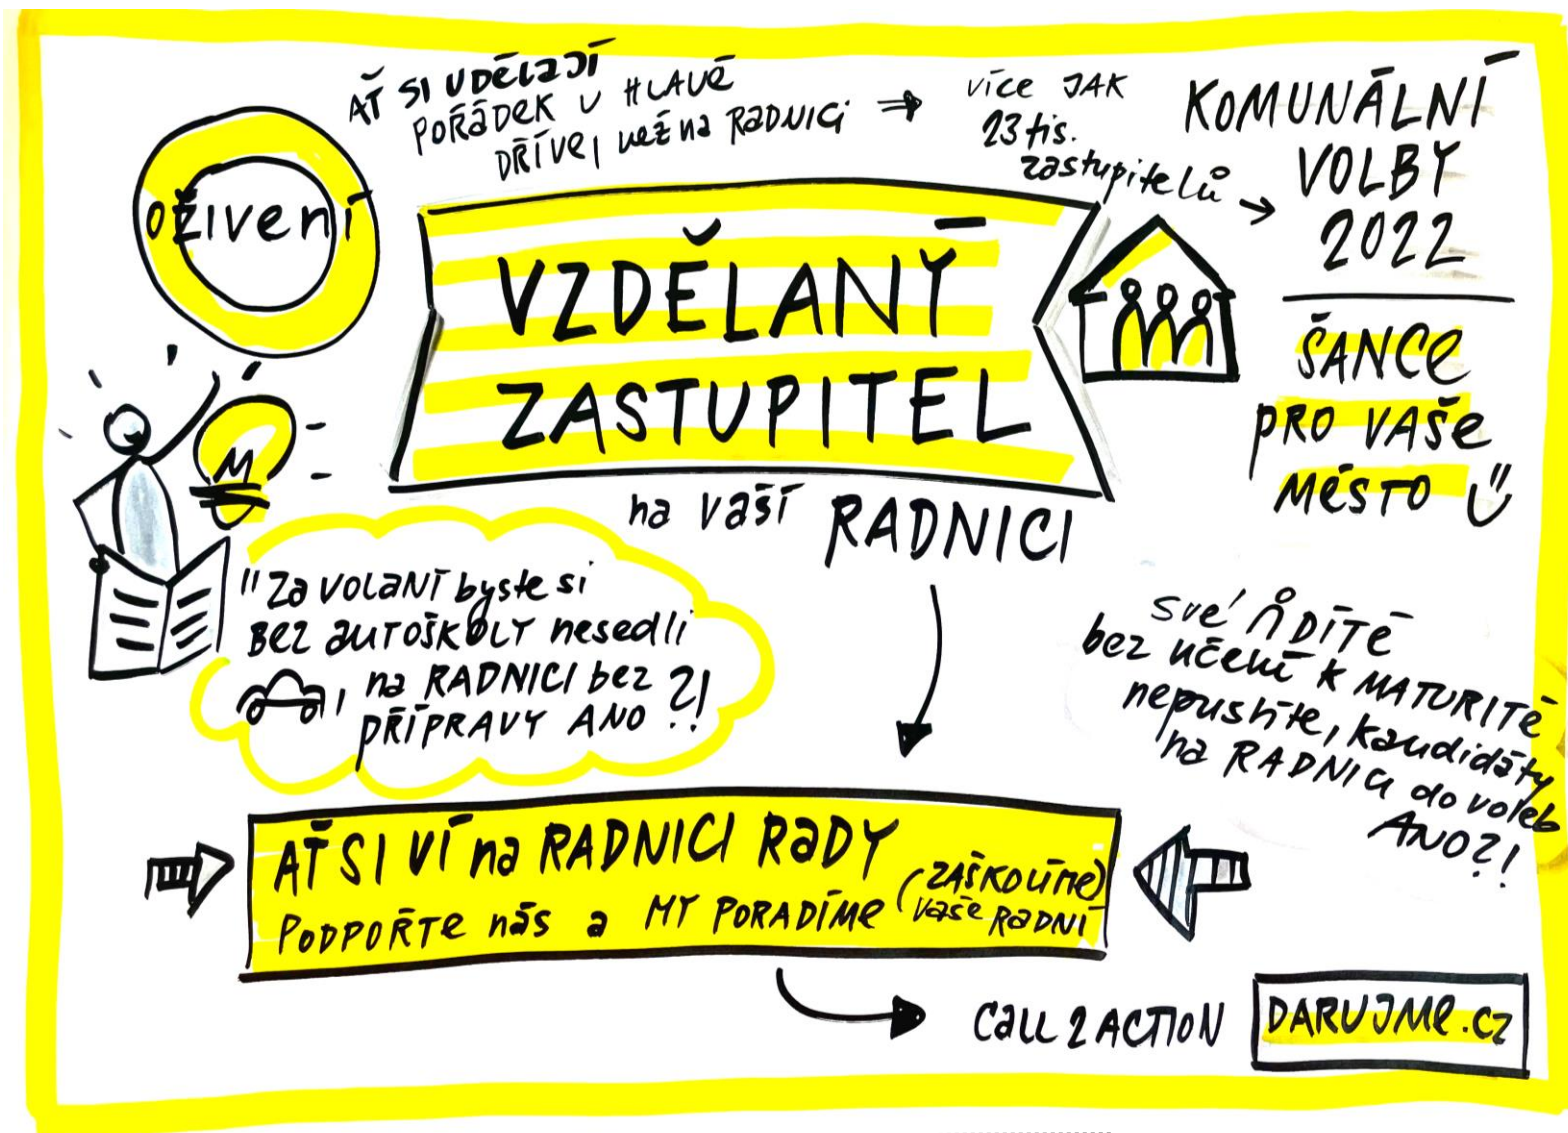 AŤ SI UDĚLAJÍ
POŘÁDEK V HLAVĚ
DŘÍVE, než na RADNICI
VÍCE JAK
23 tis.
zastupitelů
KOMUNÁLNÍ
VOLBY
2022
ŠANCE
PRO VAŠE
MĚSTO
OŽIVENÍ
VZDĚLANÝ
ZASTUPITEL
na vaší RADNICI
"Za VOLANÍ byste si
BEZ AUTOŠKOLY nesedli
, na RADNICI bez
PŘÍPRAVY ANO?!
své DÍTĚ
bez učení K MATURITĚ
nepustíte, kandidáty
na RADNICI do voleb
ANO?!
AŤ SI VÍ na RADNICI RADY
PODPOŘTE nás a MY PORADÍME (ZAŠKOLÍME)
vaše RADNÍ
CALL 2 ACTION
DARUJME.CZ